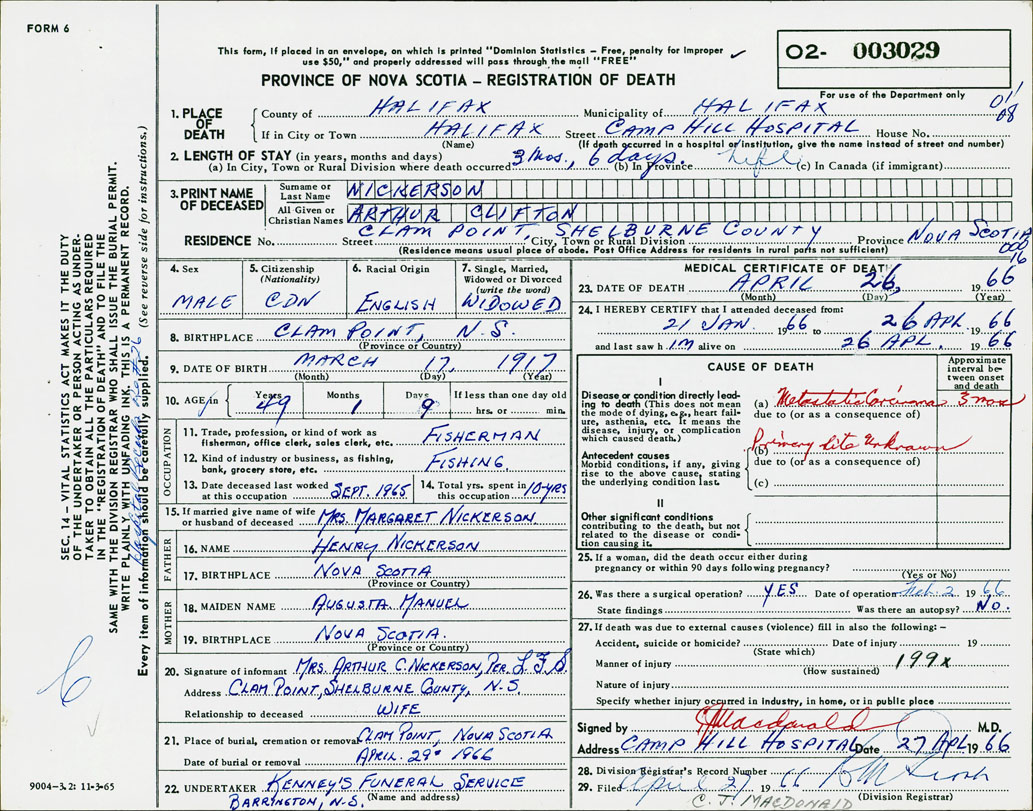 FORM 6
This form, if placed in an envelope, on which is printed "Dominion Statistics – Free, penalty for improper
use $50," and properly addressed will pass through the mail "FREE"
PROVINCE OF NOVA SCOTIA – REGISTRATION OF DEATH
02- 003029
For use of the Department only
1. PLACE OF DEATH
County of HALIFAX Municipality of HALIFAX
If in City or Town HALIFAX Street CAMP HILL HOSPITAL House No.
(Name) (If death occurred in a hospital or institution, give the name instead of street and number)
2. LENGTH OF STAY (in years, months and days)
(a) In City, Town or Rural Division where death occurred 3 mos., 6 days. (b) In Province life (c) In Canada (if immigrant)
3. PRINT NAME OF DECEASED
Surname or Last Name NICKERSON
All Given or Christian Names ARTHUR CLIFTON
RESIDENCE No. Street CLAM POINT, SHELBURNE COUNTY City, Town or Rural Division Province NOVA SCOTIA
(Residence means usual place of abode. Post Office Address for residents in rural parts not sufficient)
4. Sex MALE
5. Citizenship (Nationality) CDN
6. Racial Origin ENGLISH
7. Single, Married, Widowed or Divorced (write the word) WIDOWED
8. BIRTHPLACE CLAM POINT, N.S.
(Province or Country)
9. DATE OF BIRTH MARCH 17, 1917
(Month) (Day) (Year)
10. AGE Years 49 Months 1 Days 9 If less than one day old hrs. or min.
OCCUPATION
11. Trade, profession, or kind of work as fisherman, office clerk, sales clerk, etc. FISHERMAN
12. Kind of industry or business, as fishing, bank, grocery store, etc. FISHING.
13. Date deceased last worked at this occupation SEPT. 1965
14. Total yrs. spent in this occupation 10-YRS
15. If married give name of wife or husband of deceased MRS. MARGARET NICKERSON.
FATHER
16. NAME HENRY NICKERSON
17. BIRTHPLACE NOVA SCOTIA
(Province or Country)
MOTHER
18. MAIDEN NAME AUGUSTA MANUEL
19. BIRTHPLACE NOVA SCOTIA.
(Province or Country)
20. Signature of informant MRS. ARTHUR C. NICKERSON, PER. L.F.S.
Address CLAM POINT, SHELBURNE COUNTY, N.S.
Relationship to deceased WIFE
21. Place of burial, cremation or removal CLAM POINT, NOVA SCOTIA
Date of burial or removal APRIL 29, 1966
22. UNDERTAKER KENNEY'S FUNERAL SERVICE
BARRINGTON, N.S. (Name and address)
MEDICAL CERTIFICATE OF DEATH
23. DATE OF DEATH APRIL 26, 1966
(Month) (Day) (Year)
24. I HEREBY CERTIFY that I attended deceased from:
21 JAN. 1966 to 26 APL. 1966
and last saw him alive on 26 APL. 1966
CAUSE OF DEATH
Approximate interval between onset and death
I
Disease or condition directly leading to death (This does not mean the mode of dying, e.g., heart failure, asthenia, etc. It means the disease, injury, or complication which caused death.)
(a) Metastatic Carcinoma 3 mos
due to (or as a consequence of)
Antecedent causes
Morbid conditions, if any, giving rise to the above cause, stating the underlying condition last.
(b) Primary Site Unknown
due to (or as a consequence of)
(c)
II
Other significant conditions
contributing to the death, but not related to the disease or condition causing it.
25. If a woman, did the death occur either during
pregnancy or within 90 days following pregnancy?
(Yes or No)
26. Was there a surgical operation? YES Date of operation Feb. 2 1966
State findings Was there an autopsy? NO.
27. If death was due to external causes (violence) fill in also the following:–
Accident, suicide or homicide? Date of injury 19
(State which)
Manner of injury 199x
(How sustained)
Nature of injury
Specify whether injury occurred in industry, in home, or in public place
Signed by Macdonald M.D.
Address CAMP HILL HOSPITAL Date 27 APL 1966
28. Division Registrar's Record Number
29. Filed April 27 1966
(Division Registrar)
C. J. MACDONALD
SEC. 14 – VITAL STATISTICS ACT MAKES IT THE DUTY
OF THE UNDERTAKER OR PERSON ACTING AS UNDER-
TAKER TO OBTAIN ALL THE PARTICULARS REQUIRED
IN THE "REGISTRATION OF DEATH" AND TO FILE THE
SAME WITH THE DIVISION REGISTRAR WHO SHALL ISSUE THE BURIAL PERMIT.
WRITE PLAINLY WITH UNFADING INK, THIS IS A PERMANENT RECORD.
Every item of information should be carefully supplied. (See reverse side for instructions.)
9004–3.2: 11-3-65